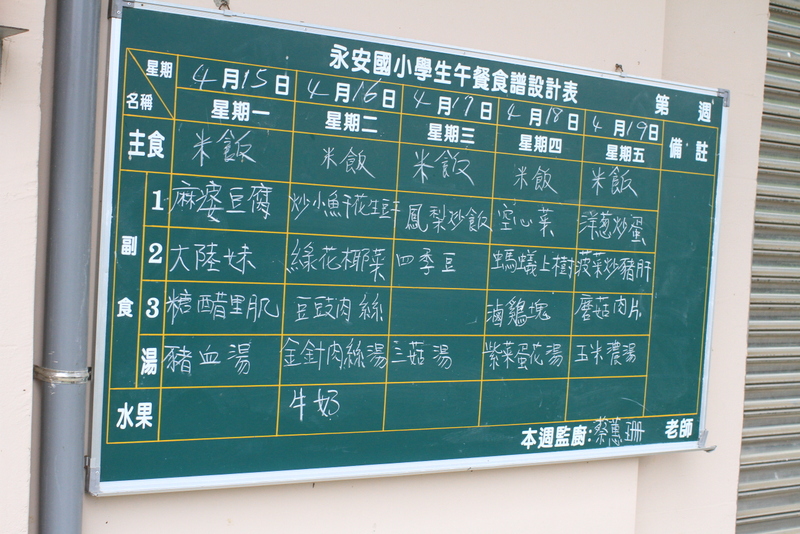 永安國小學生午餐食譜設計表
第 週
星期 名稱 4月15日 4月16日 4月17日 4月18日 4月19日 備註
星期一 星期二 星期三 星期四 星期五
主食 米飯 米飯 米飯 米飯 米飯
副食
1 麻婆豆腐 炒小魚干花生豆干 鳳梨炒飯 空心菜 洋蔥炒蛋
2 大陸妹 綠花椰菜 四季豆 螞蟻上樹 菠菜炒豬肝
3 糖醋里肌 豆豉肉絲 滷鷄塊 蘑菇肉片
湯 豬血湯 金針肉絲湯 三菇湯 紫菜蛋花湯 玉米濃湯
水果 牛奶
本週監廚:蔡蕙珊 老師